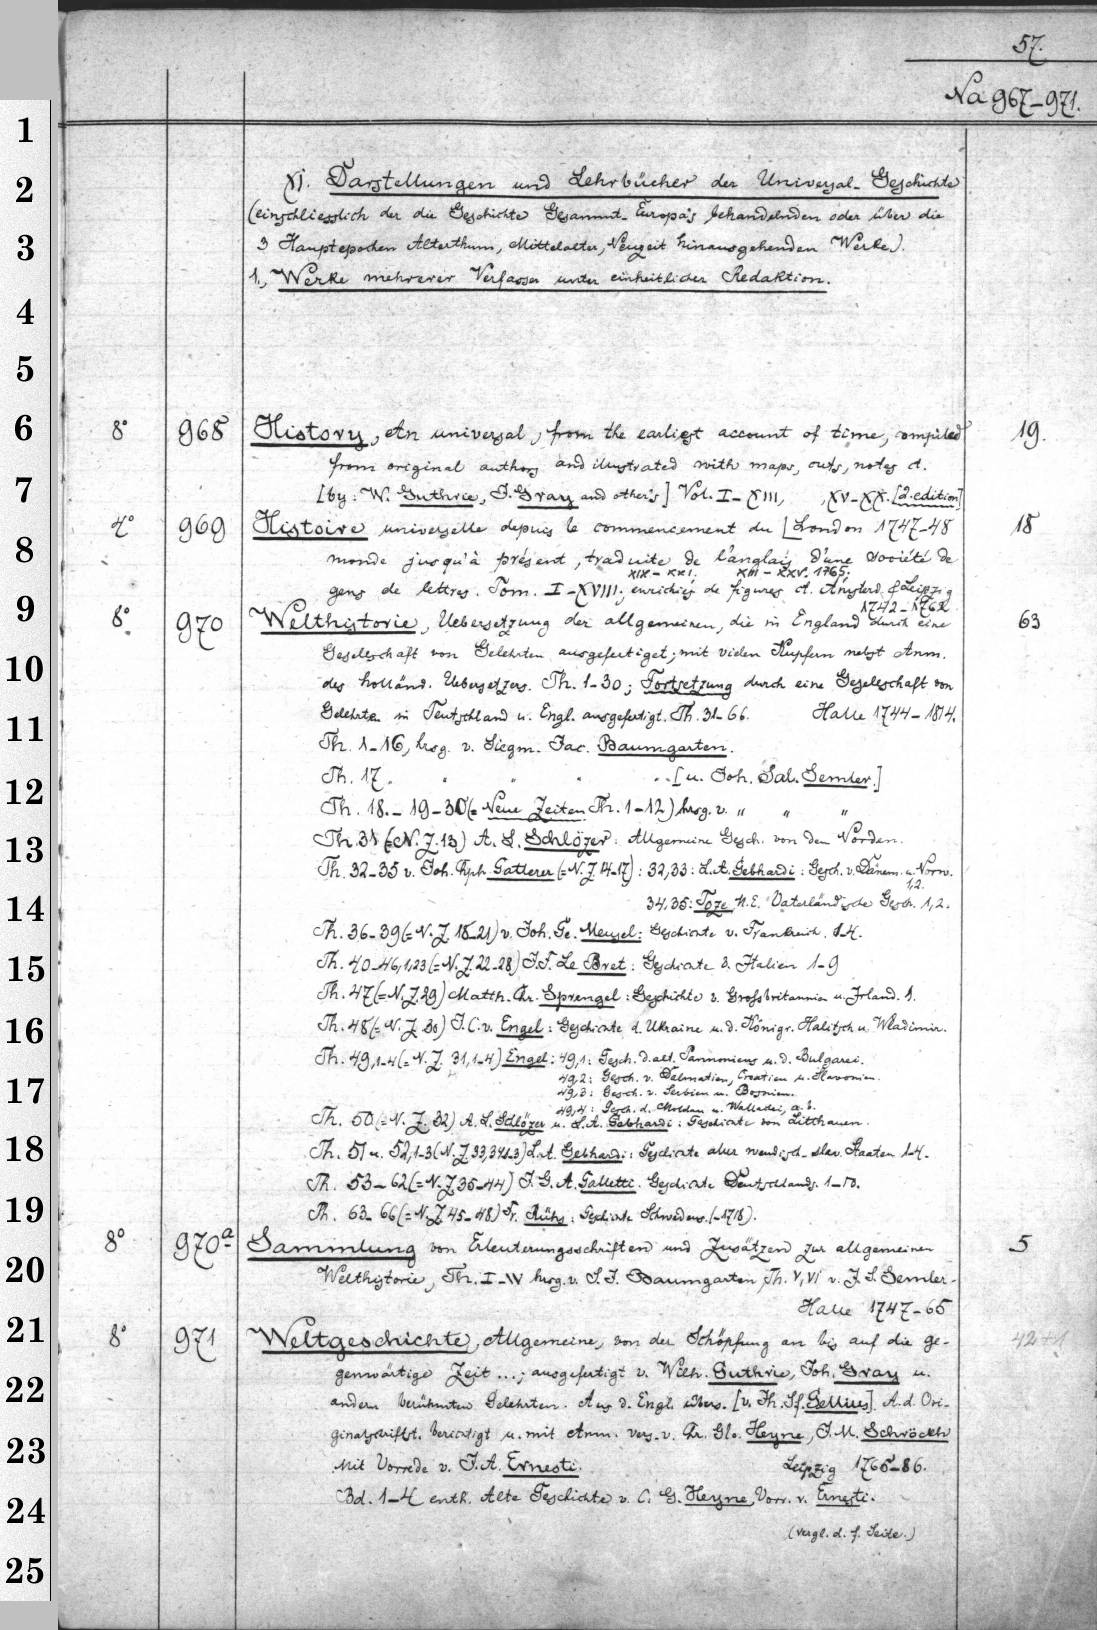 57.
Na 967–971.
XI. Darstellungen und Lehrbücher der Universal-Geschichte
(einschliesslich der die Geschichte Gesammt-Europa's behandelnden oder über die
3 Hauptepochen Alterthum, Mittelalter, Neuzeit hinausgehenden Werke).
1., Werke mehrerer Verfasser unter einheitlicher Redaktion.
8° 968 History, An universal, from the earliest account of time, compiled 19.
from original authors and illustrated with maps, cuts, notes et.
[by: W. Guthrie, J. Gray and others] Vol. I–XIII, XV–XX. [2. edition]
4° 969 Histoire universelle depuis le commencement du [London 1747–48 18
monde jusqu'à présent, traduite de l'anglais d'une société de
XIX–XXI. XIII–XXV. 1765;
gens de lettres. Tom. I–XVIII; enrichies de figures et. Amsterd. & Leipzig
1742–1762
8° 970 Welthistorie, Uebersetzung der allgemeinen, die in England durch eine 63
Gesellschaft von Gelehrten ausgefertiget; mit vielen Kupfern nebst Anm.
des holländ. Uebersetzers. Th. 1–30; Fortsetzung durch eine Gesellschaft von
Gelehrten in Teutschland u. Engl. ausgefertigt. Th. 31–66. Halle 1744–1814.
Th. 1–16, hrsg. v. Siegm. Jac. Baumgarten.
Th. 17. " " " " [u. Joh. Sal. Semler.]
Th. 18.–19–30 (= Neue Zeiten Th. 1–12) hrsg. v. " " "
Th. 31 (= N. Z. 13) A. L. Schlözer: Allgemeine Gesch. von dem Norden.
Th. 32–35 v. Joh. Chph. Gatterer (= N. Z. 14–17): 32,33: L. A. Gebhardi: Gesch. v. Dänem. u. Norw.
1,2.
34.35: Toze, M. E. Vaterländische Gesch. 1,2.
Th. 36–39 (= N. Z. 18–21) v. Joh. Ge. Meusel: Geschichte v. Frankreich. 1–4.
Th. 40–46,1,23 (= N. Z. 22–28) J. F. Le Bret: Geschichte v. Italien 1–9
Th. 47 (= N. Z. 29) Matth. Chr. Sprengel: Geschichte v. Grossbritannien u. Irland. 1.
Th. 48 (= N. Z. 30) J. C. v. Engel: Geschichte d. Ukraine u. d. Königr. Halitsch u. Wladimir.
Th. 49,1–4 (= N. Z. 31,1–4) Engel: 49,1: Gesch. d. alt. Pannoniens u. d. Bulgarei.
49,2: Gesch. v. Dalmatien, Croatien u. Slavonien.
49,3: Gesch. v. Serbien u. Bosnien.
49,4: Gesch. d. Moldau u. Wallachei, a. b.
Th. 50 (= N. Z. 32) A. L. Schlözer u. L. A. Gebhardi: Geschichte von Litthauen.
Th. 51 u. 52,1–3 (N. Z. 33, 34,1–3) L. A. Gebhardi: Geschichte aller wendisch-slav. Staaten 1–4.
Th. 53–62 (= N. Z. 35–44) J. G. A. Galletti. Geschichte Deutschlands. 1–10.
Th. 63–66 (= N. Z. 45–48) Fr. Rühs: Geschichte Schwedens. (–1718).
8° 970a Sammlung von Erleuterungsschriften und Zusätzen zur allgemeinen 5
Welthistorie, Th. I–IV hrsg. v. S. J. Baumgarten, Th. V, VI v. J. S. Semler.
Halle 1747–65
8° 971 Weltgeschichte, Allgemeine, von der Schöpfung an bis auf die ge- 42+1
genwärtige Zeit ...; ausgefertigt v. Wilh. Guthrie, Joh. Gray u.
andern berühmten Gelehrten. Aus d. Engl. übers. [v. Th. Sf. Gellius]. A. d. Ori-
ginalschriftst. berichtigt u. mit Anm. vers. v. Chr. Glo. Heyne, J. M. Schröckh
Mit Vorrede v. J. A. Ernesti. Leipzig 1765–86.
Bd. 1–4 enth. Alte Geschichte v. C. G. Heyne, Vorr. v. Ernesti.
(vergl. d. f. Seite.)
1
2
3
4
5
6
7
8
9
10
11
12
13
14
15
16
17
18
19
20
21
22
23
24
25